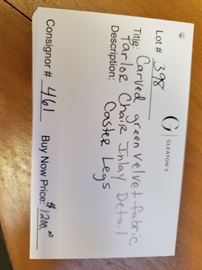 GLEATON'S
Lot # 398
Title: Carved green velvet fabric
Parlor Chair Inlay Detail
Description:
Caster Legs
Consignor # 461
Buy Now Price: $1200.00